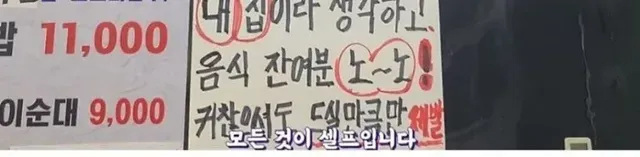 밥 11,000
이순대 9,000
내집이라 생각하고
음식 잔여분 노~노!
귀찮아서도 드실마큼만 제발
모든 것이 셀프입니다